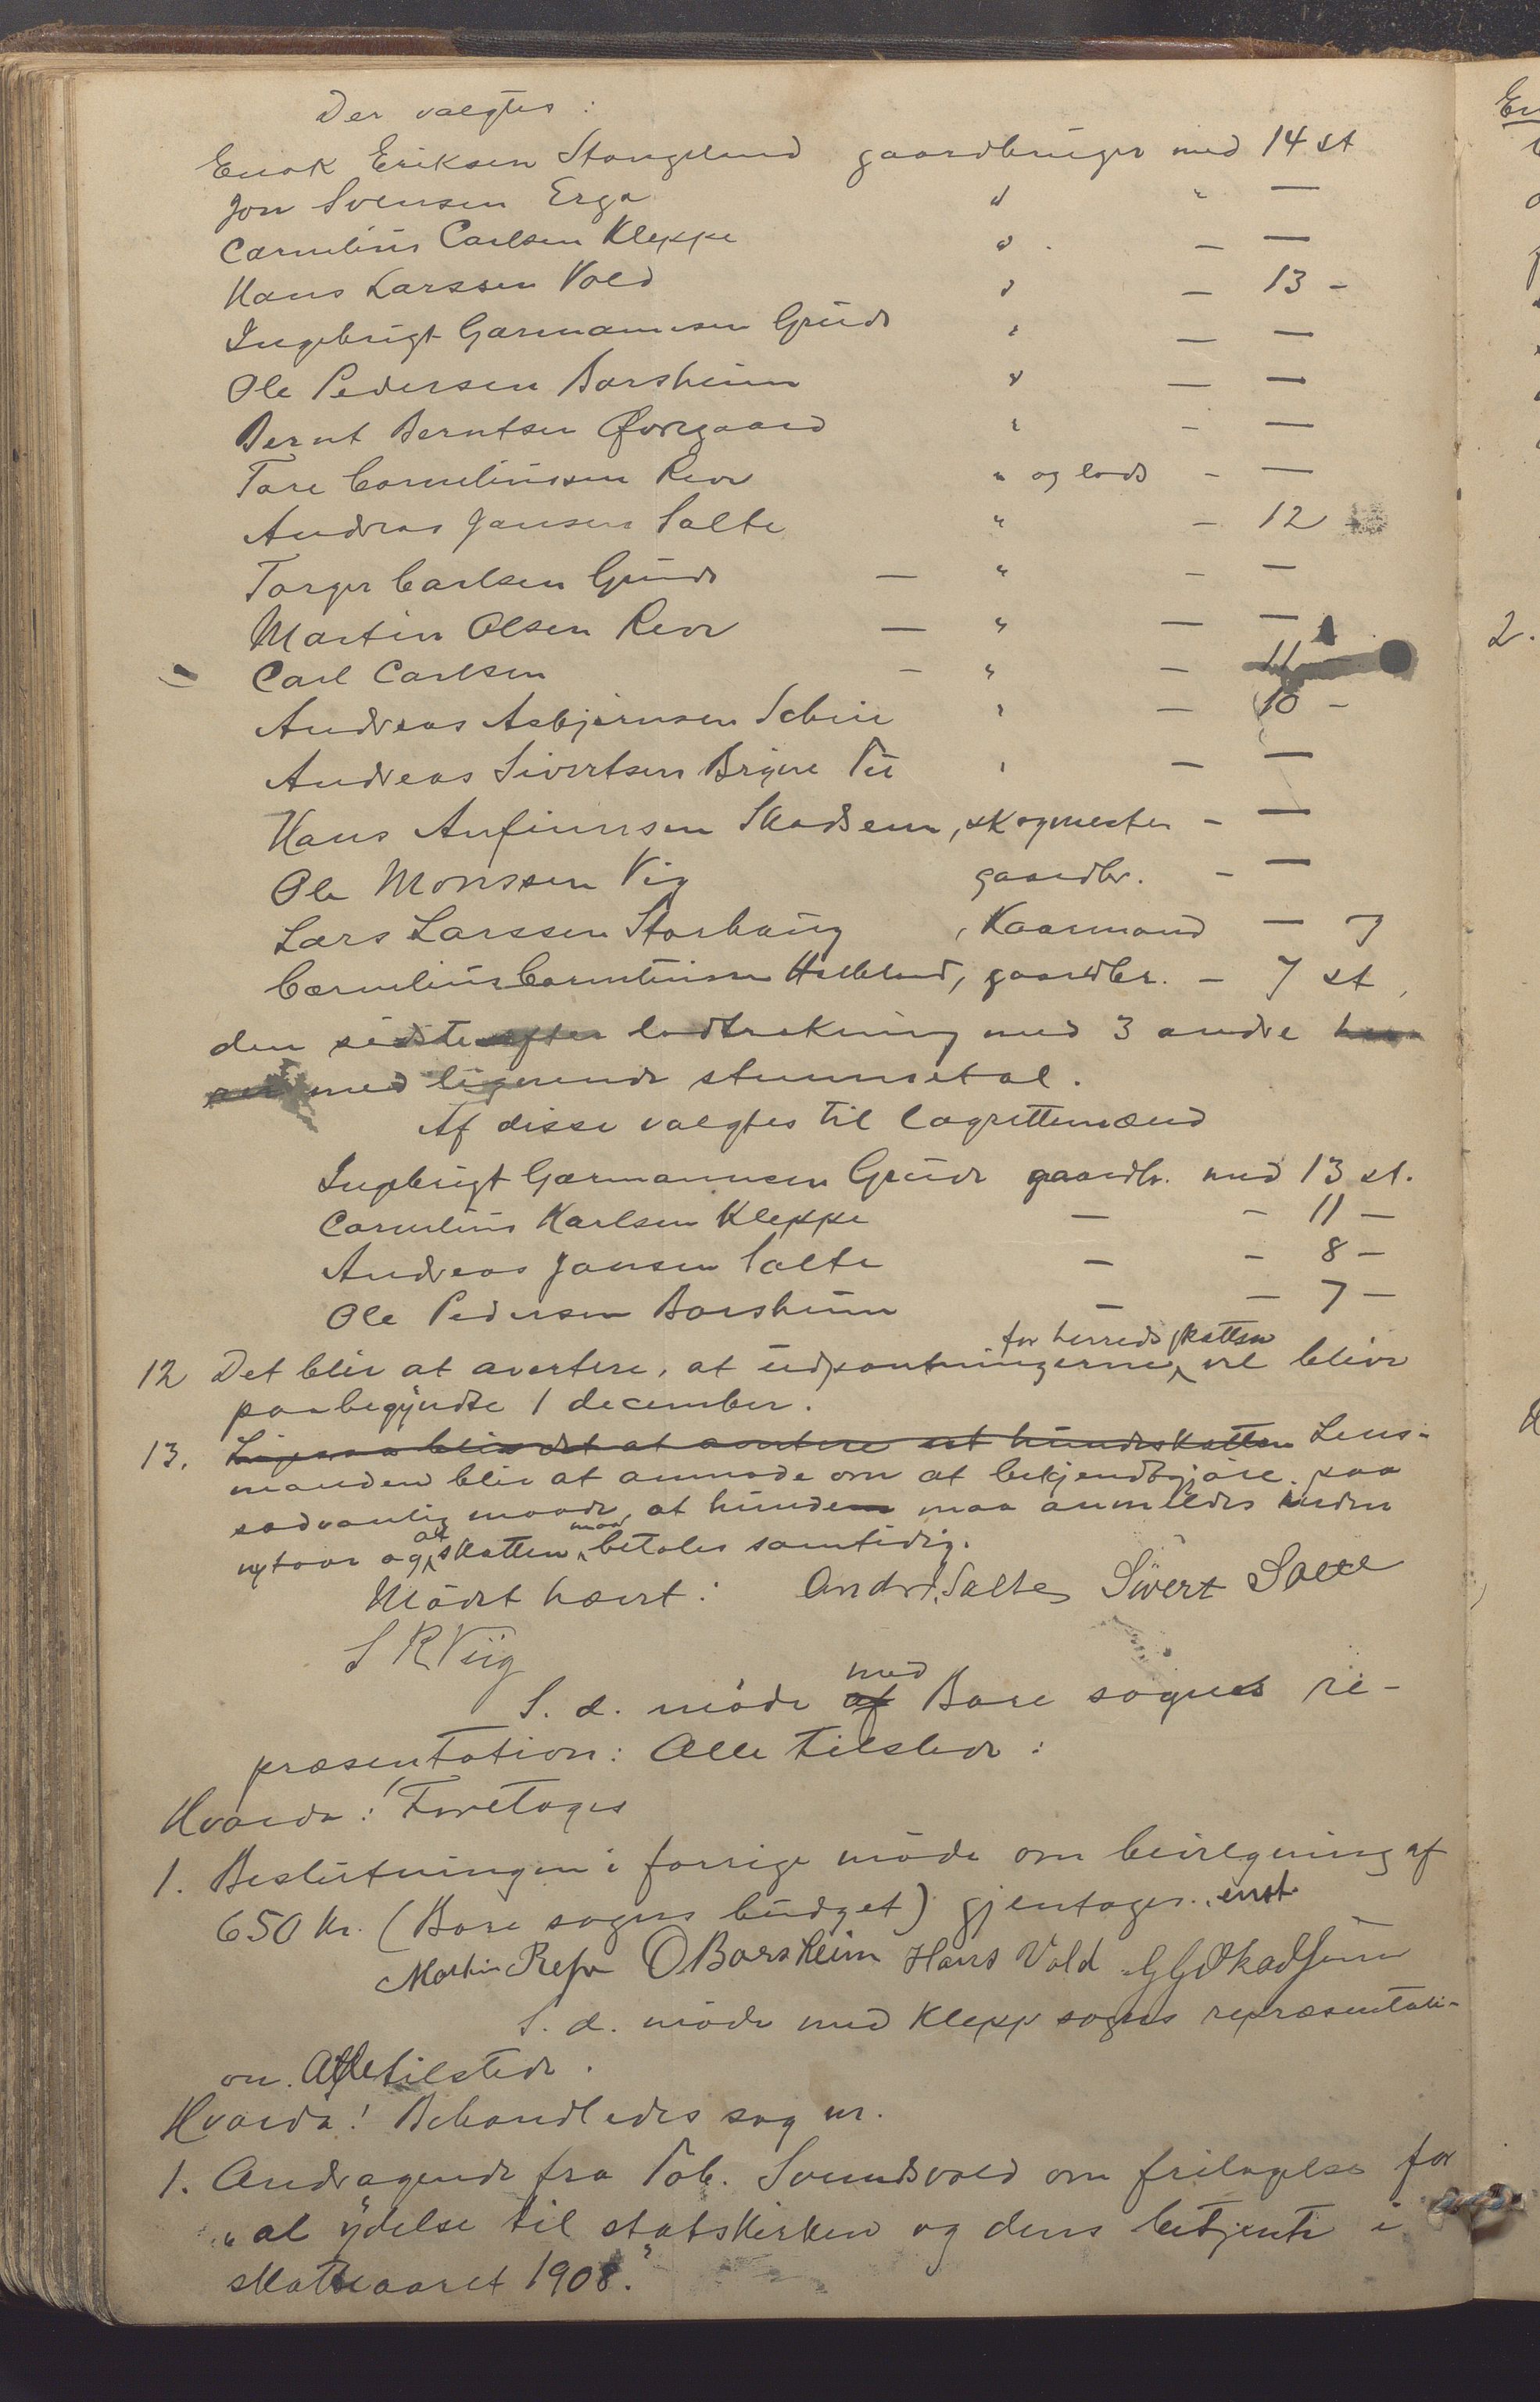 Der valgtes:
Enok Eriksen Stangeland gaardbruger med 14 st
Jon Svensen Erga " " —
Cornelius Carlsen Kleppe " - —
Hans Larssen Vold " - 13 -
Ingebrigt Garmannsen Grude " - —
Ole Pedersen Borsheim " - —
Bernt Berntsen Øvregaard " - —
Tore Corneliussen Reve " og lods - —
Andreas Jansen Salte " - 12
Torger Carlsen Grude — " - —
Martin Olsen Reve — " — —
Carl Carlsen — " — 11 -
Andreas Asbjørnsen Sele " — 10 -
Andreas Sivertsen Bryne Tu " — —
Hans Anfinnsen Skadsem, skogmester - —
Ole Monssen Vig gaardbr. - —
Lars Larssen Storhaug, Kaarmand — 7
Cornelius Corneliussen Hælland, gaardbr. - 7 st,
den sidste efter lodtrækning med 3 andre
med lignende stemmetal.
Af disse valgtes til lagrettemænd
Ingebrigt Garmannsen Grude gaardbr. med 13 st.
Cornelius Karlsen Kleppe — - 11 -
Andreas Jansen Salte — - 8 -
Ole Pedersen Borsheim — - 7 -
12 Det blir at avertere, at udpantningerne for herredsskatten vil blive
paabegyndte 1 december.
13. Ligesaa blir det at avertere at hundeskatten Lens-
manden blir at anmode om at bekjendtgjøre paa
sedvanlig maade, at hunde maa anmeldes inden
nytaar og at skatten maa betales samtidig.
Mødet hævet: Andr. J. Salte Sivert Salte
S R Viig
S. d. møde af med Bore sogns re-
præsentation: Alle tilstede:
Hvorda: Foretoges
1. Beslutningen i forrige møde om bevilgning af
650 kr. (Bore sogns budget) gjentoges. enst.
Martin Reve O Borsheim Hans Vold G G Skadsem
S. d. møde med Klepp sogns repræsentati-
on. Alle tilstede.
Hvorda! Behandledes sag nr.
1. Andragende fra Tob. Sveindsvold om fritagelse for
"al ydelse til statskirken og dens betjente i
skatteaaret 1908."
Er
2.